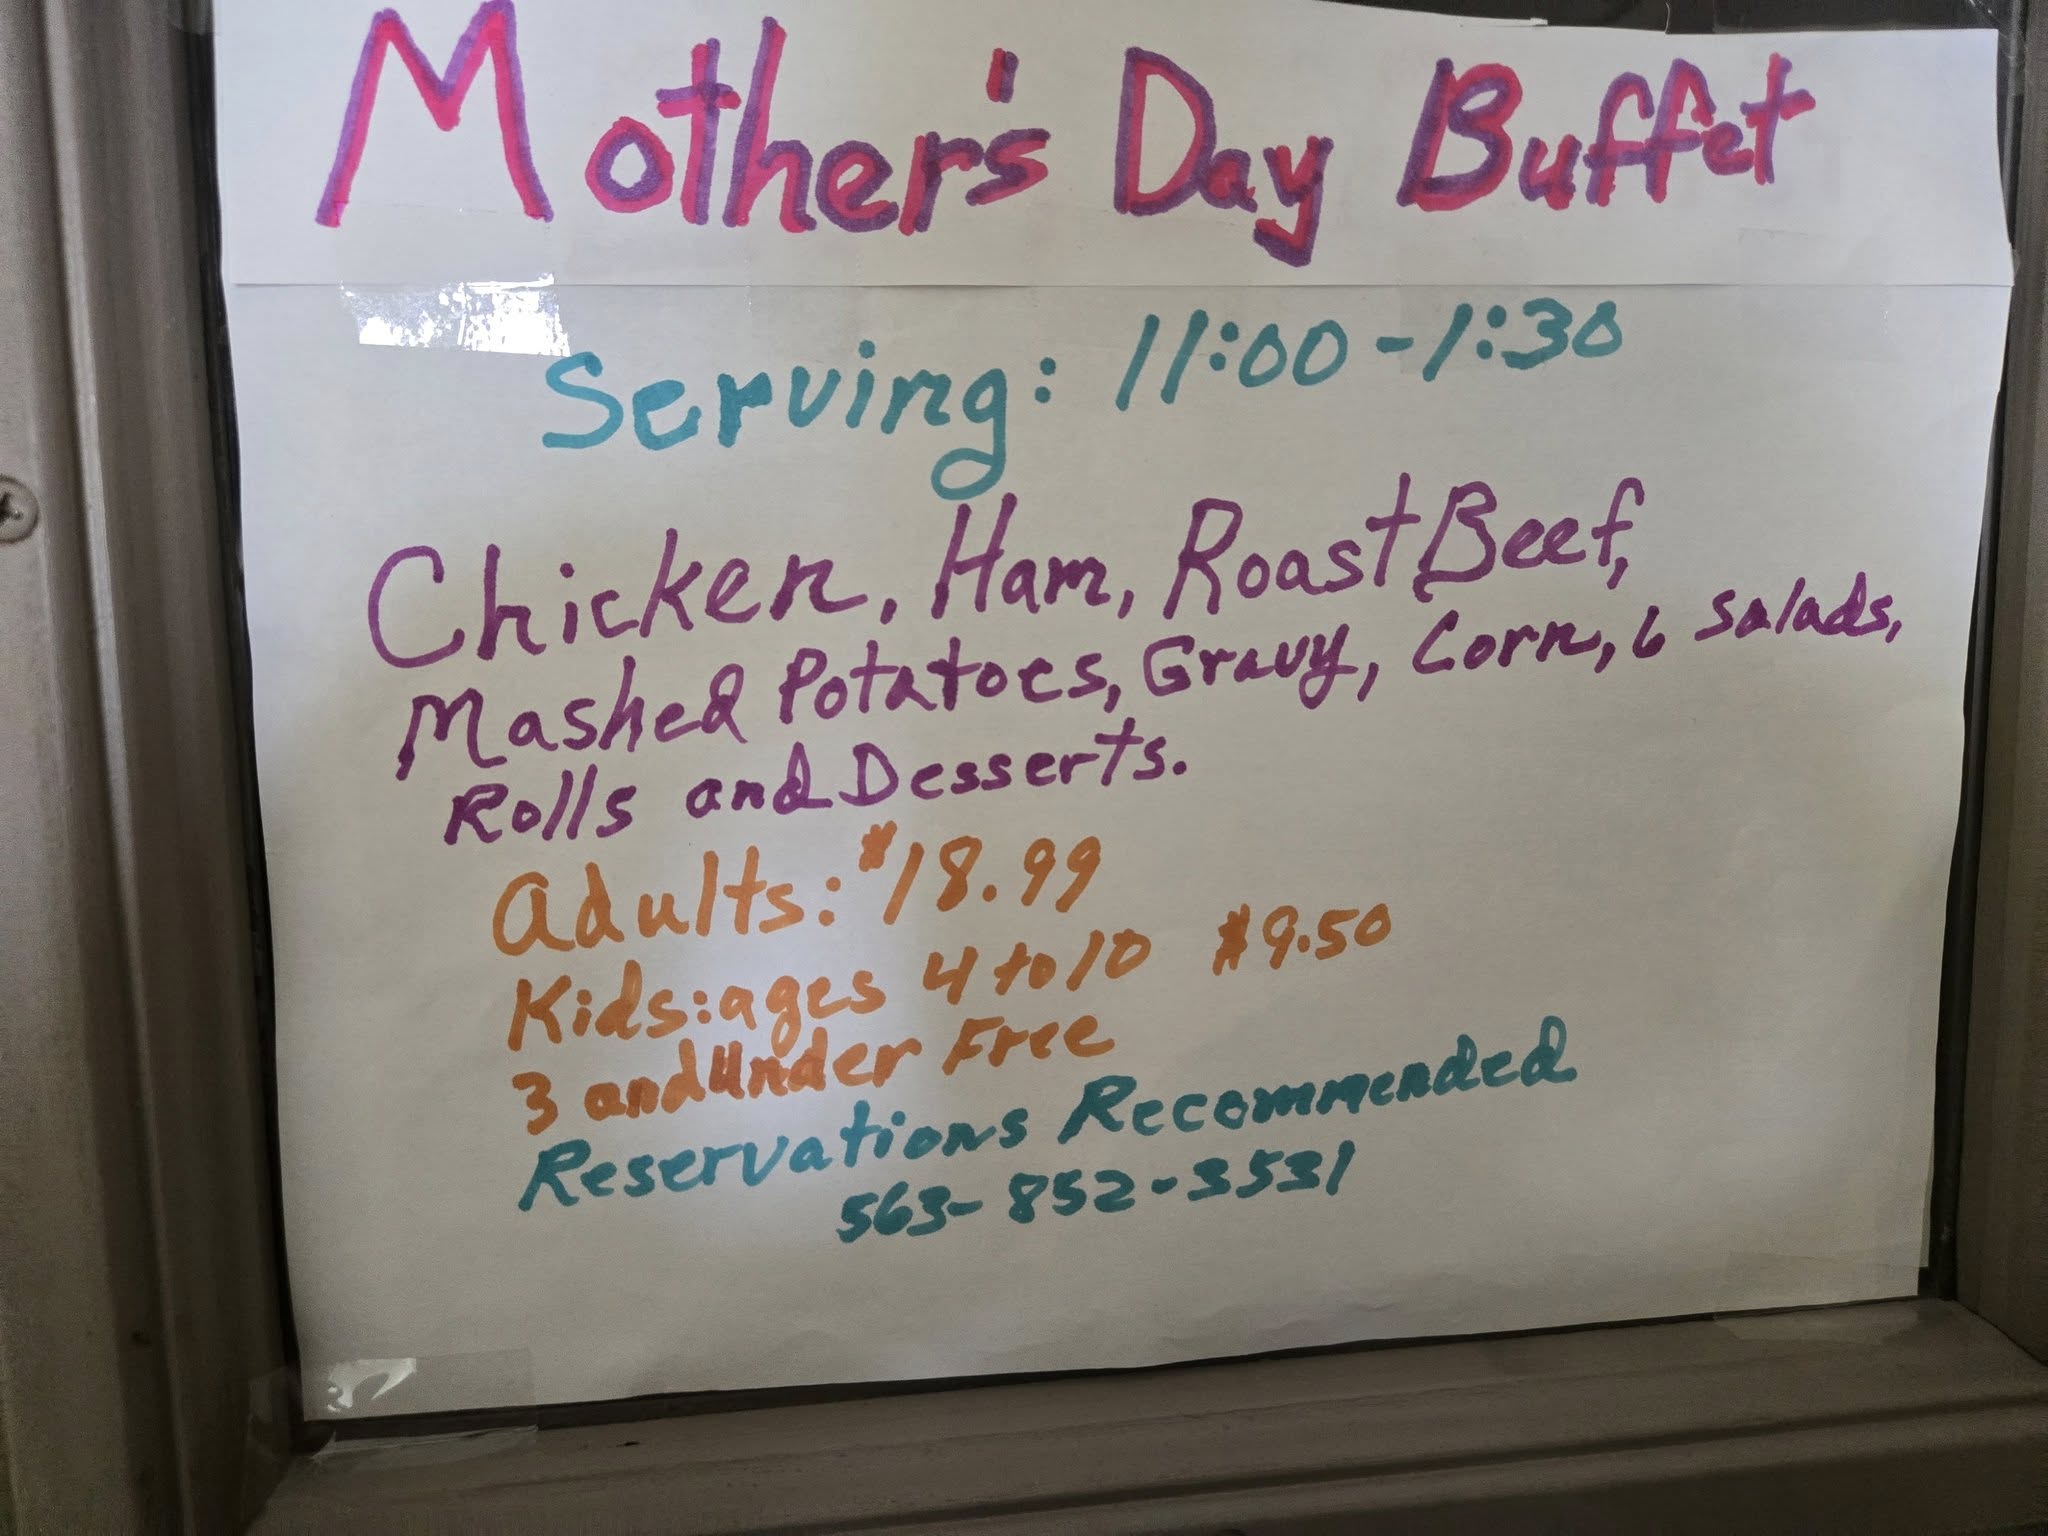 Mother's Day Buffet
Serving: 11:00-1:30
Chicken, Ham, Roast Beef,
Mashed Potatoes, Gravy, Corn, 6 salads,
Rolls and Desserts.
Adults: $18.99
Kids: ages 4 to 10 $9.50
3 and Under Free
Reservations Recommended
563-852-3531